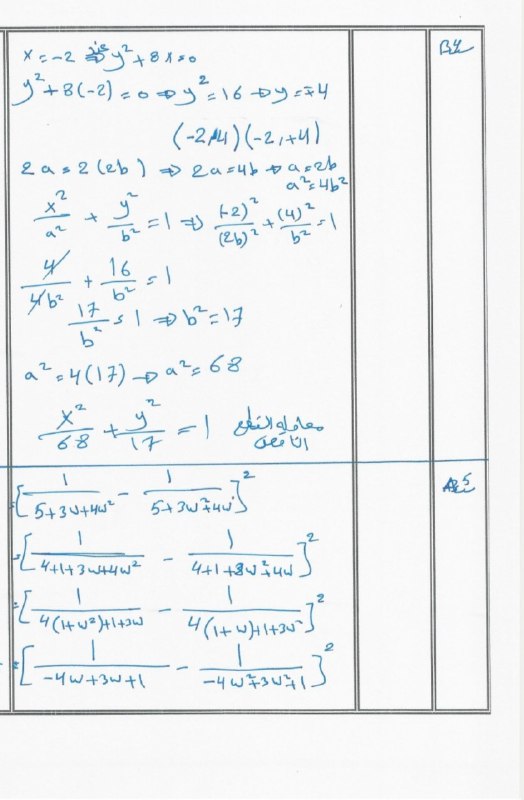 B4
x = -2 عند ⇒ y² + 8x = 0
y² + 8(-2) = 0 ⇒ y² = 16 ⇒ y = ∓4
(-2,-4) (-2,+4)
2a = 2(2b) ⇒ 2a = 4b ⇒ a = 2b
a² = 4b²
x²/a² + y²/b² = 1 ⇒ (-2)²/(2b)² + (4)²/b² = 1
4/4b² + 16/b² = 1
17/b² = 1 ⇒ b² = 17
a² = 4(17) ⇒ a² = 68
x²/68 + y²/17 = 1 معادلة القطع
الناقص
5
=[1/(5+3w+4w²) - 1/(5+3w²+4w)]²
=[1/(4+1+3w+4w²) - 1/(4+1+3w²+4w)]²
=[1/(4(1+w²)+1+3w) - 1/(4(1+w)+1+3w²)]²
=[1/(-4w+3w+1) - 1/(-4w²+3w²+1)]²